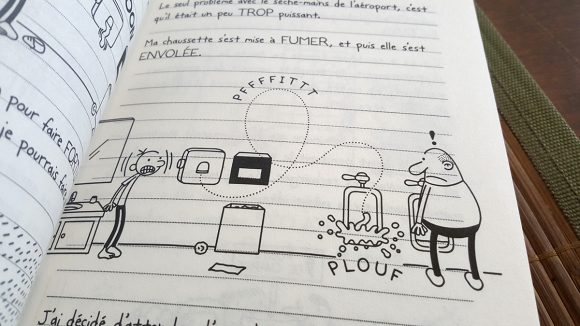 Le seul problème avec le sèche-mains de l'aéroport, c'est
qu'il était un peu TROP puissant.
Ma chaussette s'est mise à FUMER, et puis elle s'est
ENVOLÉE.
PFFFFITTT
!
PLOUF
pour faire
je pourrais
J'ai décidé